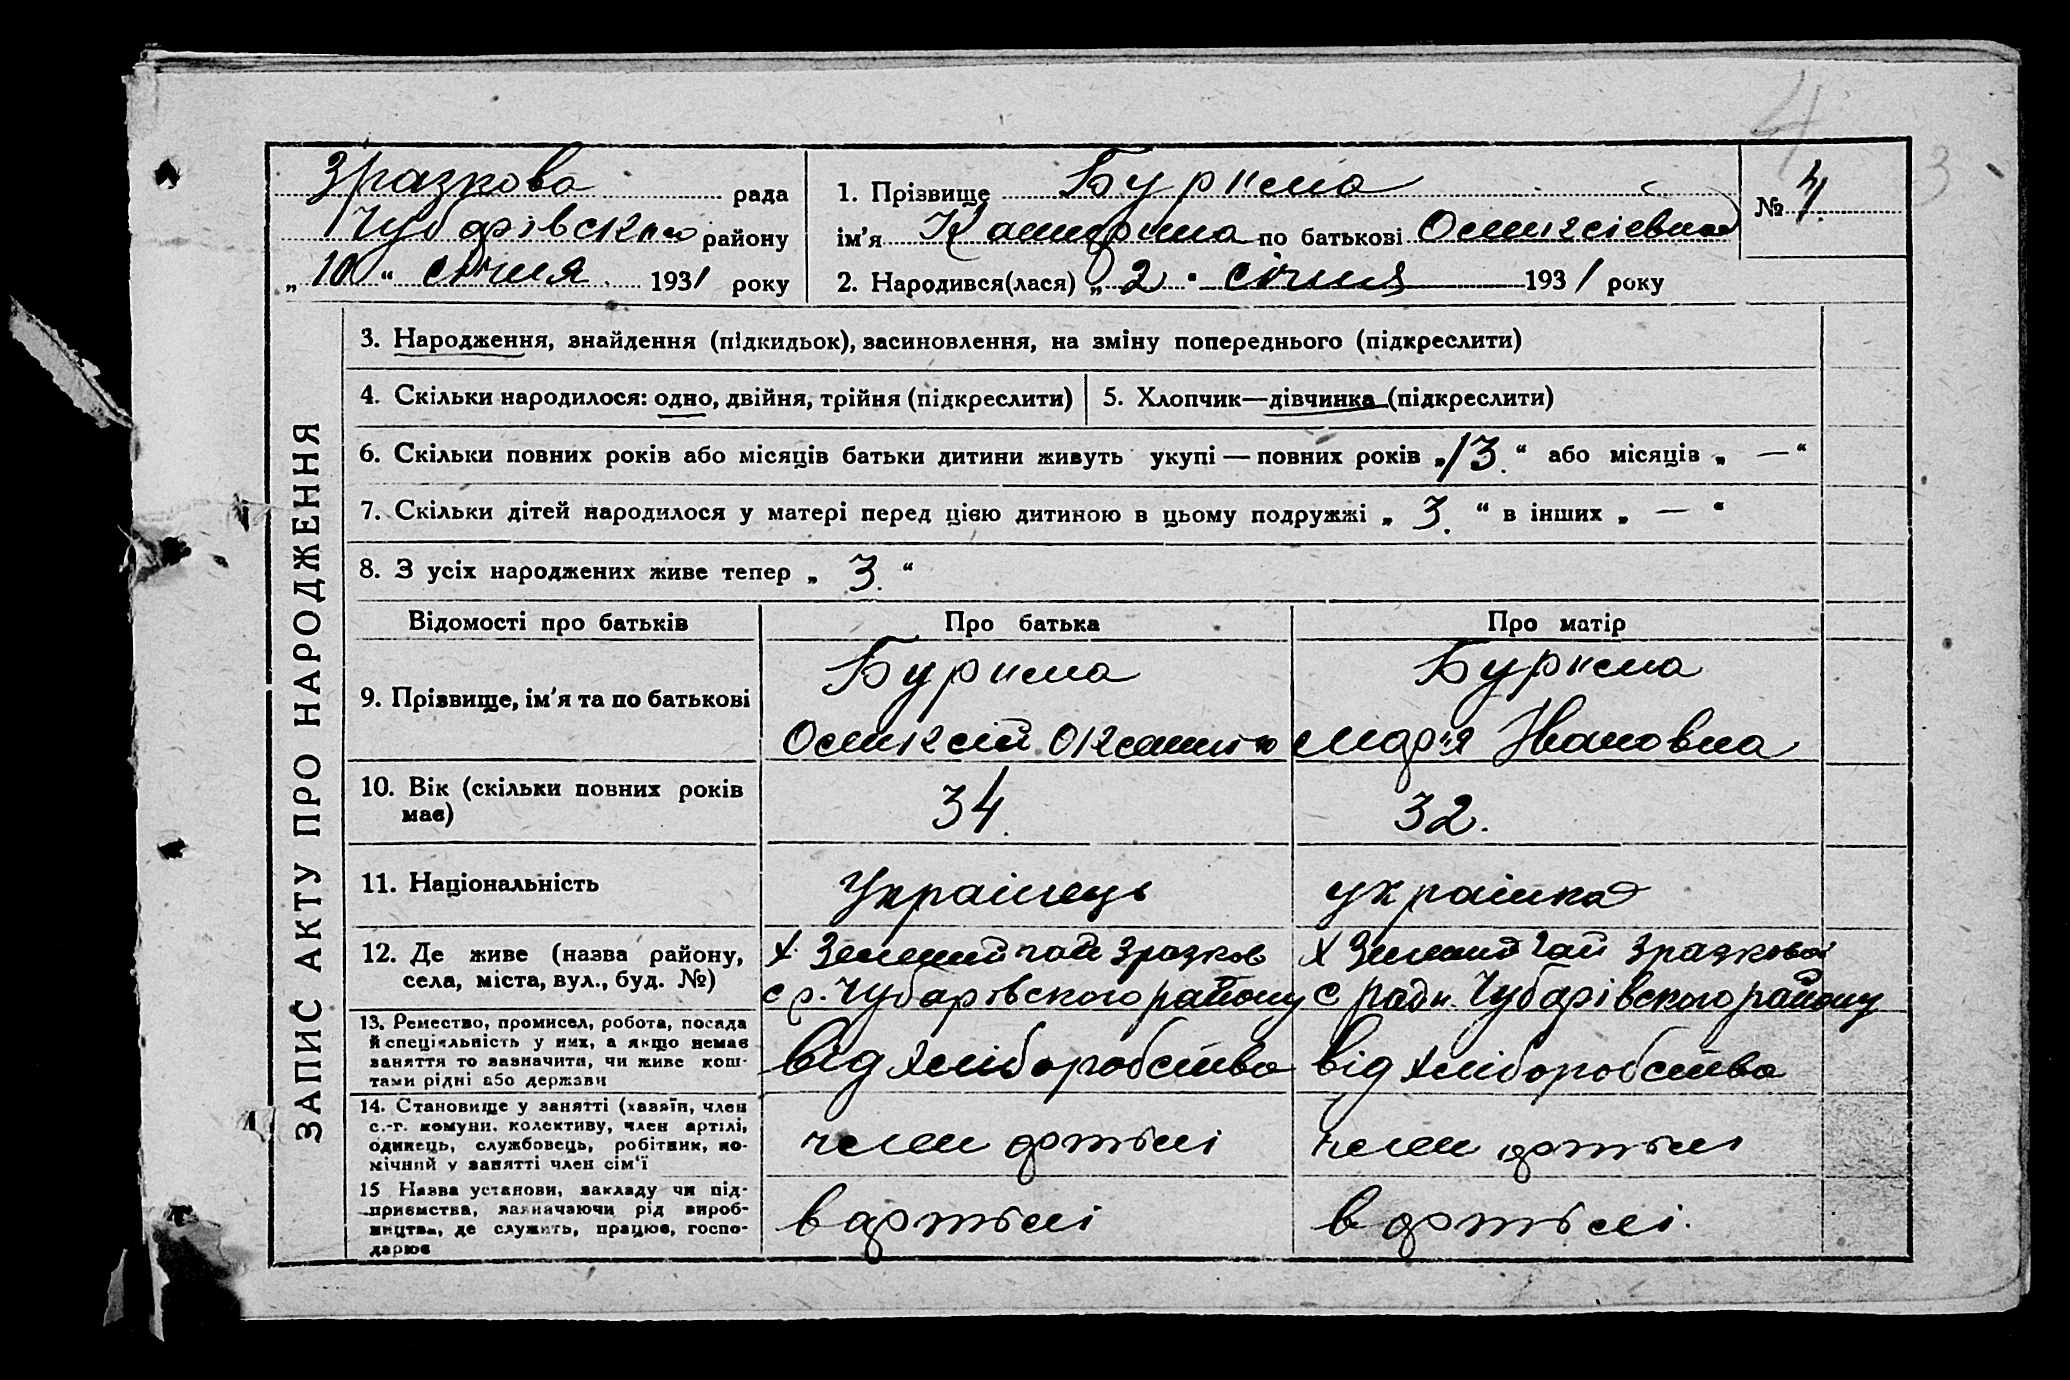 4
3
Зразкова рада
Чубарівського району
„10“ січня 1931 року
1. Прізвище Буркма
ім'я Катерина по батькові Олексієвна
2. Народився(лася) „2" січня 1931 року
№ 4.
ЗАПИС АКТУ ПРО НАРОДЖЕННЯ
3. Народження, знайдення (підкидьок), засиновлення, на зміну попереднього (підкреслити)
4. Скільки народилося: одно, двійня, трійня (підкреслити)
5. Хлопчик—дівчинка (підкреслити)
6. Скільки повних років або місяців батьки дитини живуть укупі — повних років „13.“ або місяців „ — “
7. Скільки дітей народилося у матері перед цією дитиною в цьому подружжі „ 3. “ в інших „ — “
8. З усіх народжених живе тепер „ 3. “
Відомості про батьків
Про батька
Про матір
9. Прізвище, ім'я та по батькові
Олексій
Марія Івановна
10. Вік (скільки повних років
має)
34.
32.
11. Національність
Українець
українка
12. Де живе (назва району,
села, міста, вул., буд. №)
х. Зелений гай Зразков
с р. Чубарівського району
х Зелений Гай Зразкова
с ради. Чубарівського району
13. Ремество, промисел, робота, посада
й спеціяльність у них, а якщо немає
заняття то зазначити, чи живе кош-
тами рідні або держави
від хліборобства
від хліборобства
14. Становище у занятті (хазяїн, член
с.-г. комуни, колективу, член артілі,
одинець, службовець, робітник, по-
мічний у занятті член сім'ї
член артілі
член артілі
15 Назва установи, закладу чи під-
приємства, зазначаючи рід вироб-
ництва, де служить, працює, госпо-
дарює
в артілі
в артілі.